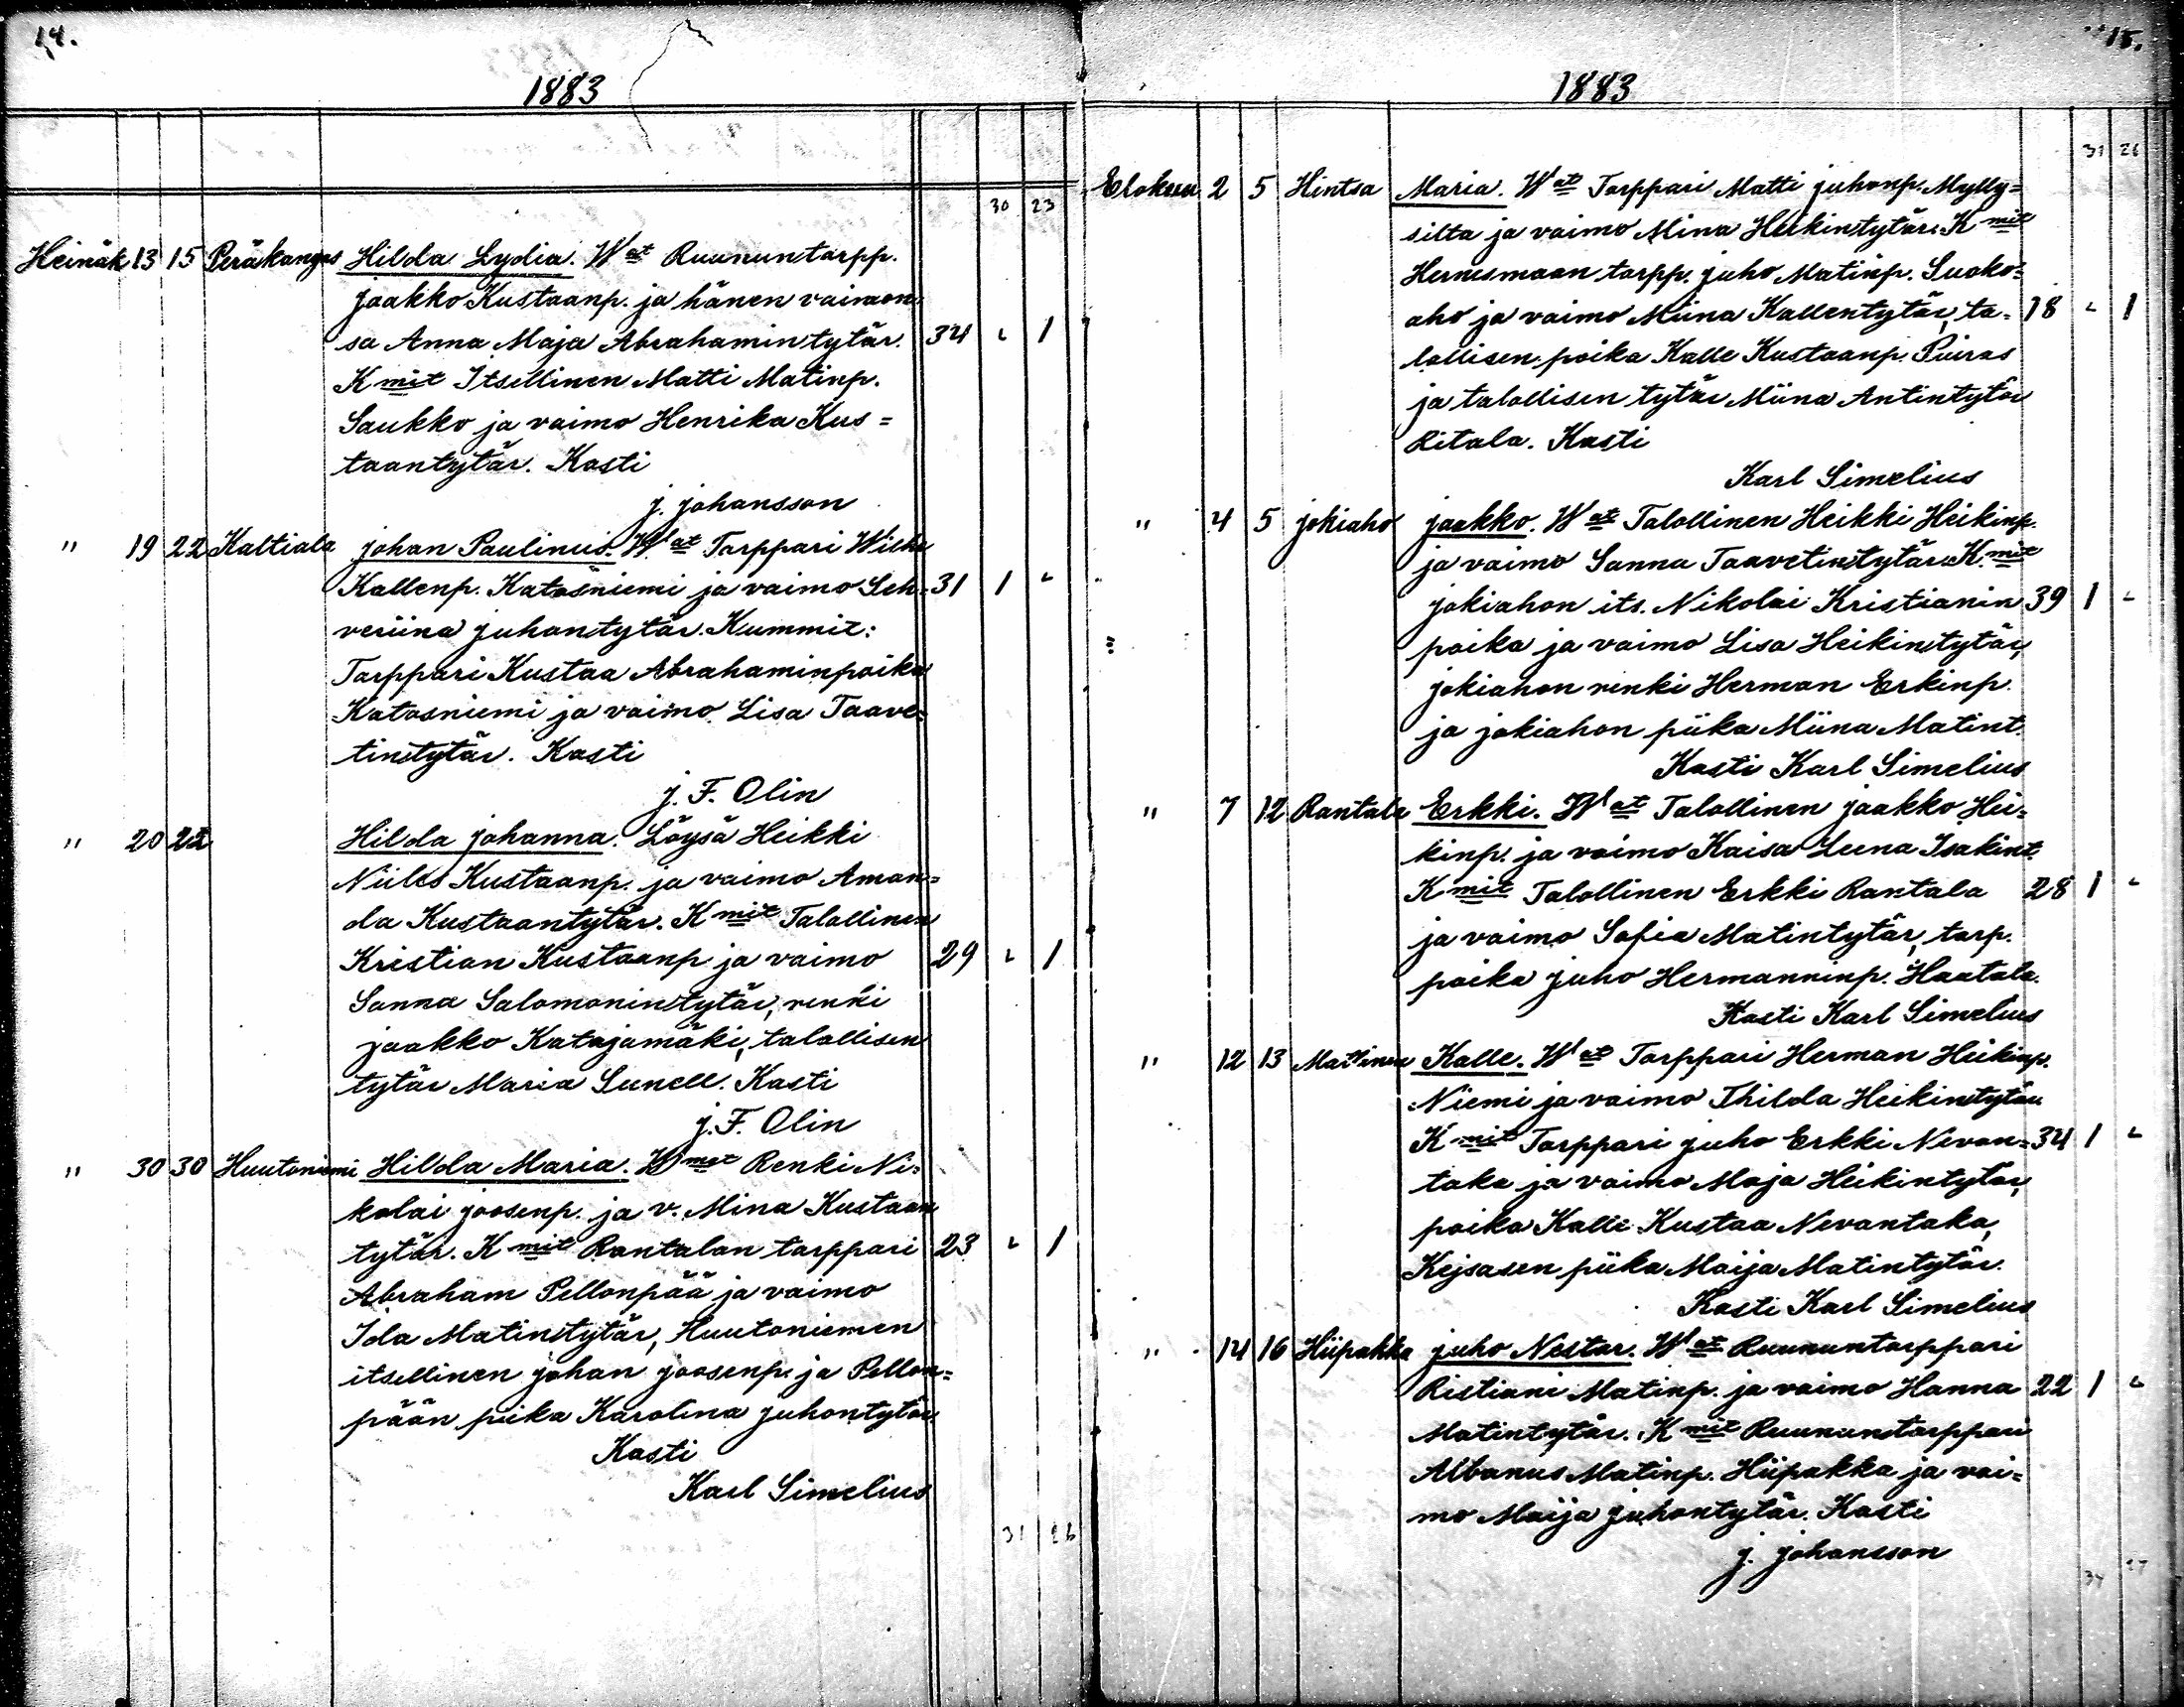 14.
1883
30 23
Heinäk 13 15 Peräkangas Hilda Lydia. Wat Ruununtarpp.
Jaakko Kustaanp. ja hänen vaimon
sa Anna Maja Abrahamintytär. 34 " 1
Kmit Itsellinen Matti Matinp.
Saukko ja vaimo Henrika Kus=
taantytär. Kasti
J. Johansson
" 19 22 Kaltiala Johan Paulinus. Wat Tarppari Wilho
Kallenp. Katasniemi ja vaimo Seh= 31 1 "
veriina Juhontytär. Kummit:
Tarppari Kustaa Abrahaminpoika
Katasniemi ja vaimo Lisa Taave=
tintytär. Kasti
J. F. Olin
" 20 22 Hilda Johanna. Löysä Heikki
Niilos Kustaanp. ja vaimo Aman=
da Kustaantytär. Kmit Talollinen
Kristian Kustaanp ja vaimo 29 " 1
Sanna Salomonintytär, renki
Jaakko Katajamäki, talollisen
tytär Maria Sunell. Kasti
J. F. Olin
" 30 30 Huutoniemi Hilda Maria. Wmat Renki Ni=
kolai Joosenp. ja v. Mina Kustaan
tytär. Kmit Rantalan tarppari 23 " 1
Abraham Pellonpää ja vaimo
Ida Matintytär, Huutoniemen
itsellinen Johan Joosenp. ja Pellon=
pään piika Karolina Juhontytär
Kasti
Karl Simelius
31 26
15.
1883
31 26
Elokuu 2 5 Hintsa Maria. Wat Tarppari Matti Juhonp. Mylly=
silta ja vaimo Mina Heikintytär. Kmit
Hernesmaan tarpp. Juho Matinp. Suoko=
aho ja vaimo Miina Kallentytär, ta= 18 " 1
lollisen poika Kalle Kustaanp. Puiras
ja talollisen tytär Miina Antintytär
Ritala. Kasti
Karl Simelius
" 4 5 Jokiaho Jaakko. Wat Talollinen Heikki Heikinp.
ja vaimo Sanna Taavetintytär. Kmit
Jokiahon its. Nikolai Kristianin 39 1 "
poika ja vaimo Lisa Heikintytär,
Jokiahon renki Herman Erkinp.
ja Jokiahon piika Miina Matint.
Kasti Karl Simelius
" 7 12 Rantala Erkki. Wat Talollinen Jaakko Hei=
kinp. ja vaimo Kaisa Leena Isakint.
Kmit Talollinen Erkki Rantala 28 1 "
ja vaimo Sofia Matintytär, tarp.
poika Juho Hermanninp. Haatala.
Kasti Karl Simelius
" 12 13 Mattinen Kalle. Wat Tarppari Herman Heikinp.
Niemi ja vaimo Thilda Heikintytär.
Kmit Tarppari Juho Erkki Nevan= 34 1 "
taka ja vaimo Maja Heikintytär,
poika Kalle Kustaa Nevantaka,
Kejsasen piika Maija Matintytär.
Kasti Karl Simelius
" 14 16 Hiipakka Juho Nestor. Wat Ruununtarppari
Ristiani Matinp. ja vaimo Hanna 22 1 "
Matintytär. Kmit Ruununtarppari
Albanus Matinp. Hiipakka ja vai=
mo Maija Juhontytär. Kasti
J. Johansson
34 27